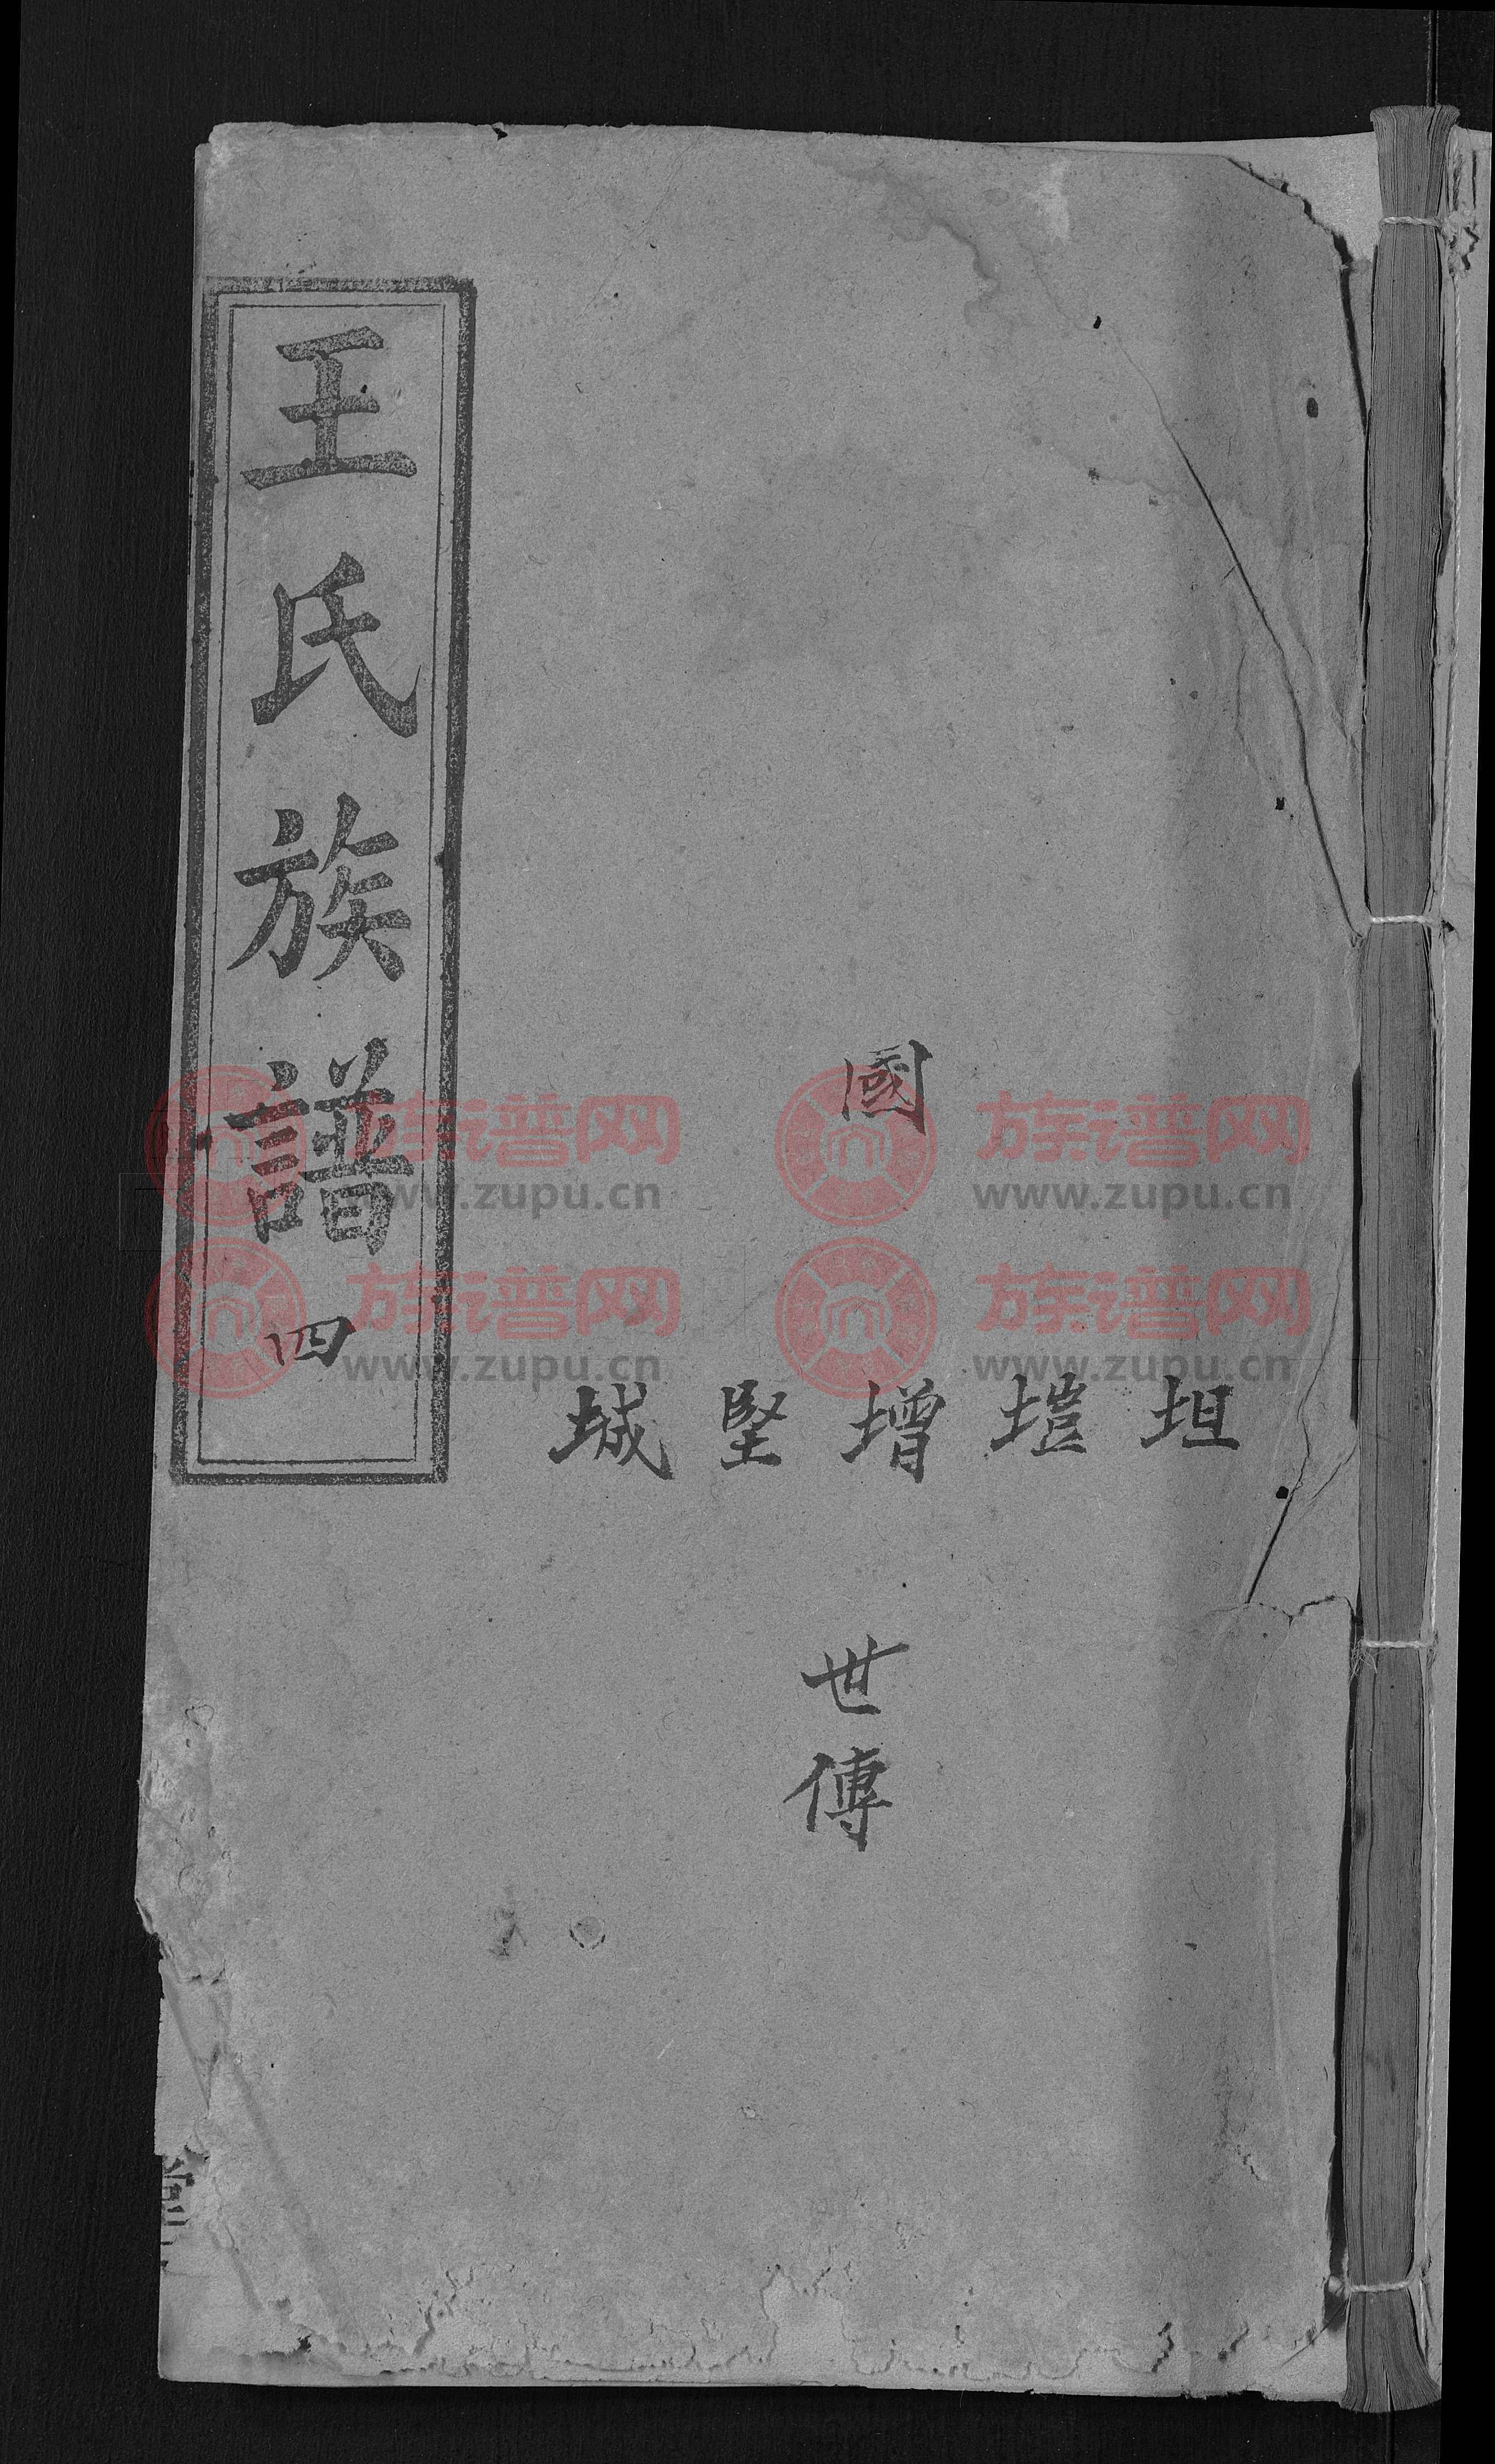 國
坦 塏 增 堅 城
世傳
王氏族譜 四
族谱网
www.zupu.cn
族谱网
www.zupu.cn
族谱网
www.zupu.cn
族谱网
www.zupu.cn